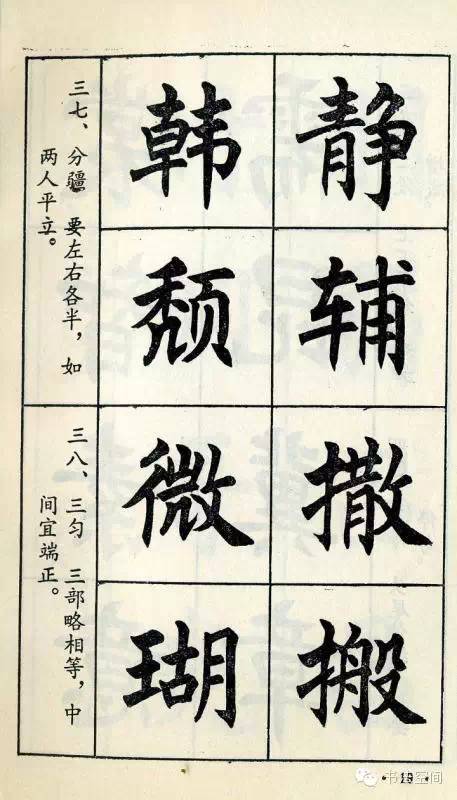 静 韩
辅 颓
三七、分疆 要左右各半，如
两人平立。
撒 微
搬 瑚
三八、三匀 三部略相等，中
间宜端正。
·19·
书艺空间